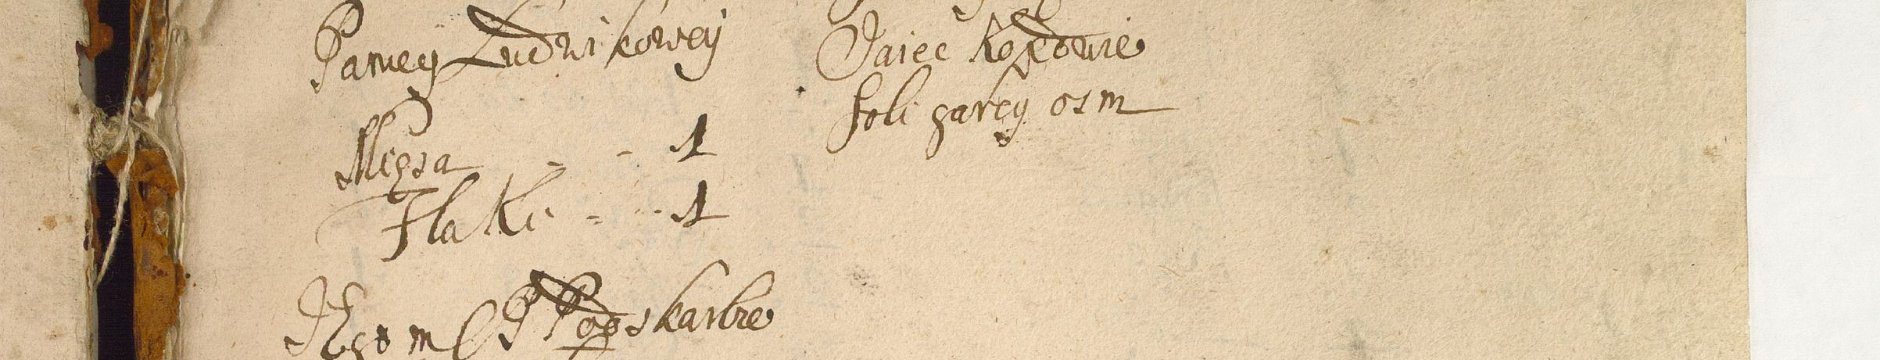 Paniey Ludwikowey
Mięsa - - 1
Flaki - - 1
Jego m P Podskarbie
Jaiec Kopowie
soli garcy osm